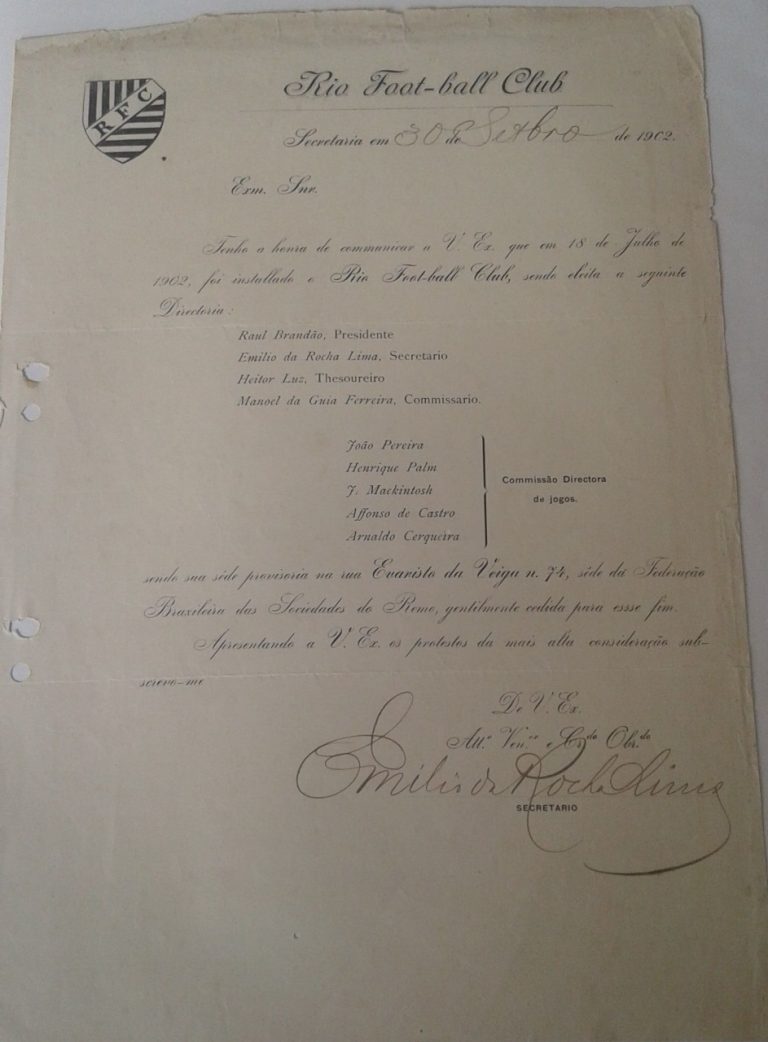 RFC
Rio Foot-ball Club
Secretaria em 30 de Setbro de 1902.
Exm. Snr.
Tenho a honra de communicar a V. Ex. que em 18 de Julho de
1902, foi installado o Rio Foot-ball Club, sendo eleita a seguinte
Directoria:
Raul Brandão, Presidente
Emilio da Rocha Lima, Secretario
Heitor Luz, Thesoureiro
Manoel da Guia Ferreira, Commissario.
João Pereira
Henrique Palm
J. Mackintosh
Affonso de Castro
Arnaldo Cerqueira
Commissão Directora
de jogos.
sendo sua séde provisoria na rua Evaristo da Veiga n. 74, séde da Federação
Brazileira das Sociedades do Remo, gentilmente cedida para essse fim.
Apresentando a V. Ex. os protestos da mais alta consideração sub-
screvo-me
De V. Ex.
Att.º Ven.or e Cr.do Obr.do
Emilio da Rocha Lima
SECRETARIO